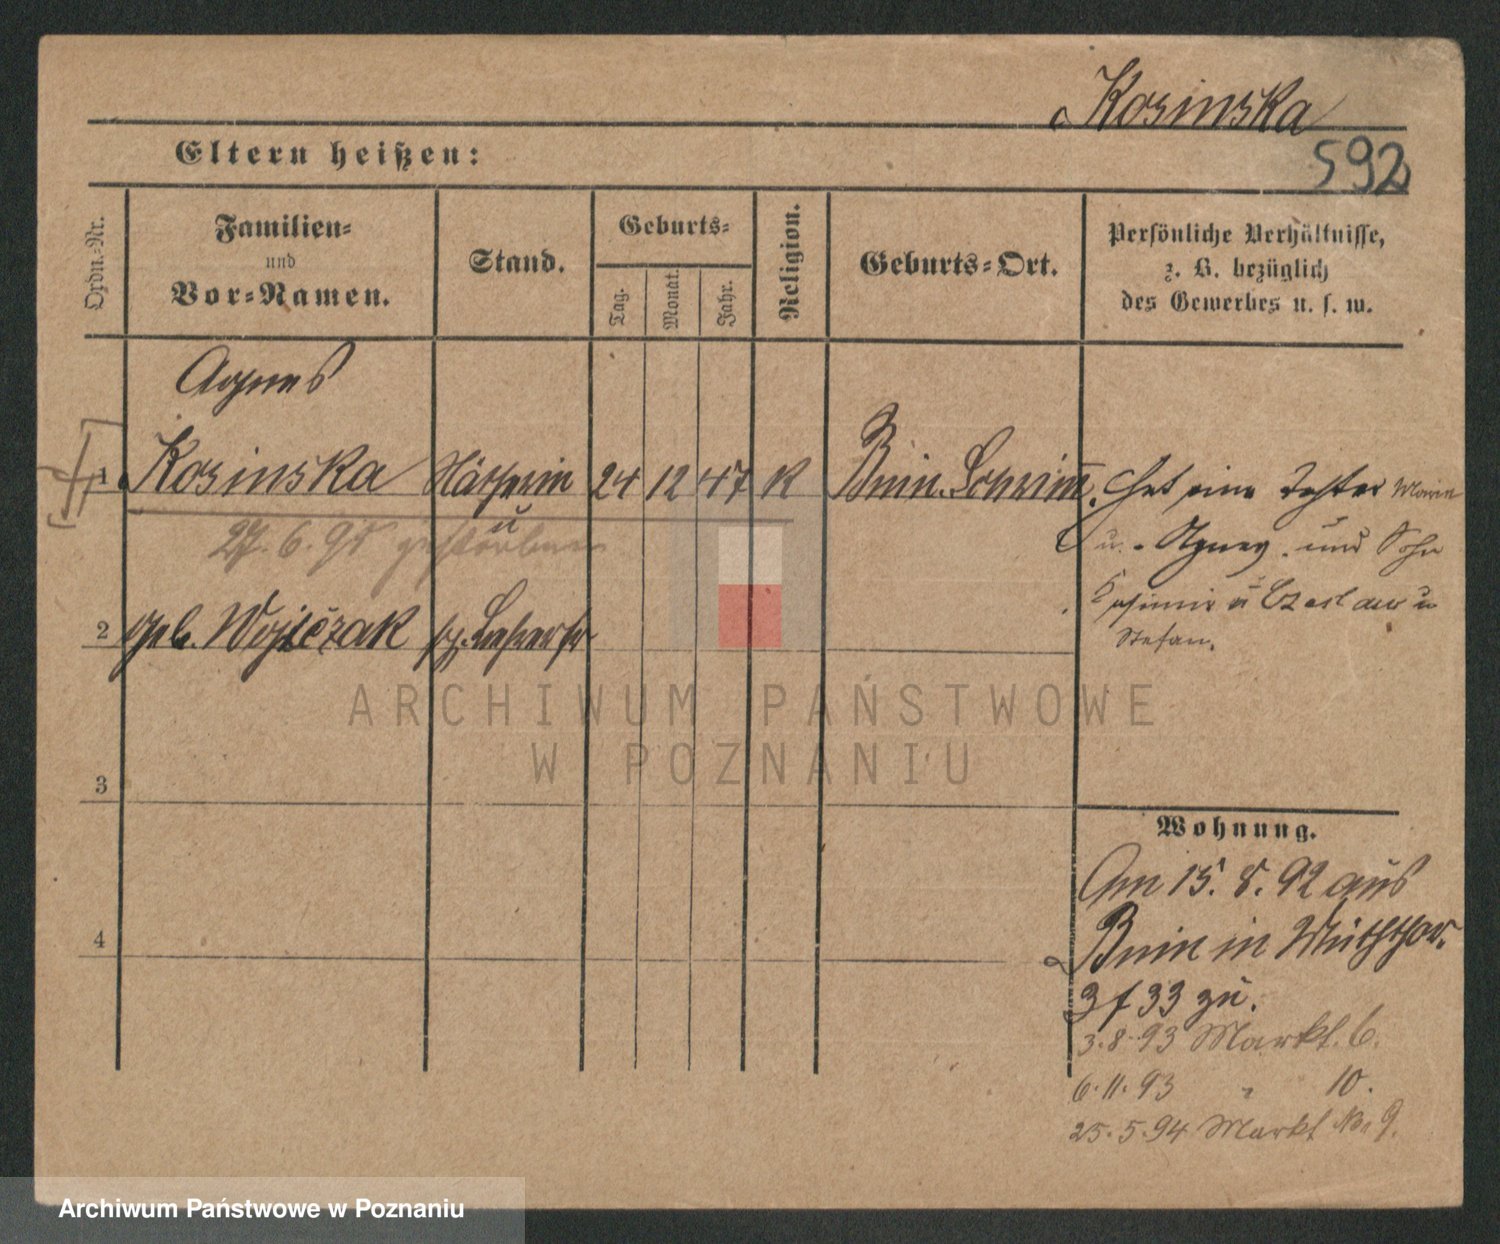 Kosinska
592
Eltern heißen:
Ordn.-Nr.
Familien-
und
Vor-Namen.
Stand.
Geburts-
Tag.
Monat.
Jahr.
Religion.
Geburts-Ort.
Persönliche Verhältnisse,
z. B. bezüglich
des Gewerbes u. s. w.
Agnes
1 Kosinska Nätherin 24 12 47 K Bnin. Schrimm. Hat eine Tochter Maria
27. 6. 95 gestorben
u. Agnes. und Sohn
Kasimir u Czeslaw u
Stefan.
2 geb. Wojtczak
3
4
Wohnung.
Am 15. 8. 92 aus
Bnin in
33 zu.
3. 8. 93 Markt. 6.
6. 11. 93 " 10.
25. 5. 94 Markt No 9.
ARCHIWUM PAŃSTWOWE
W POZNANIU
Archiwum Państwowe w Poznaniu